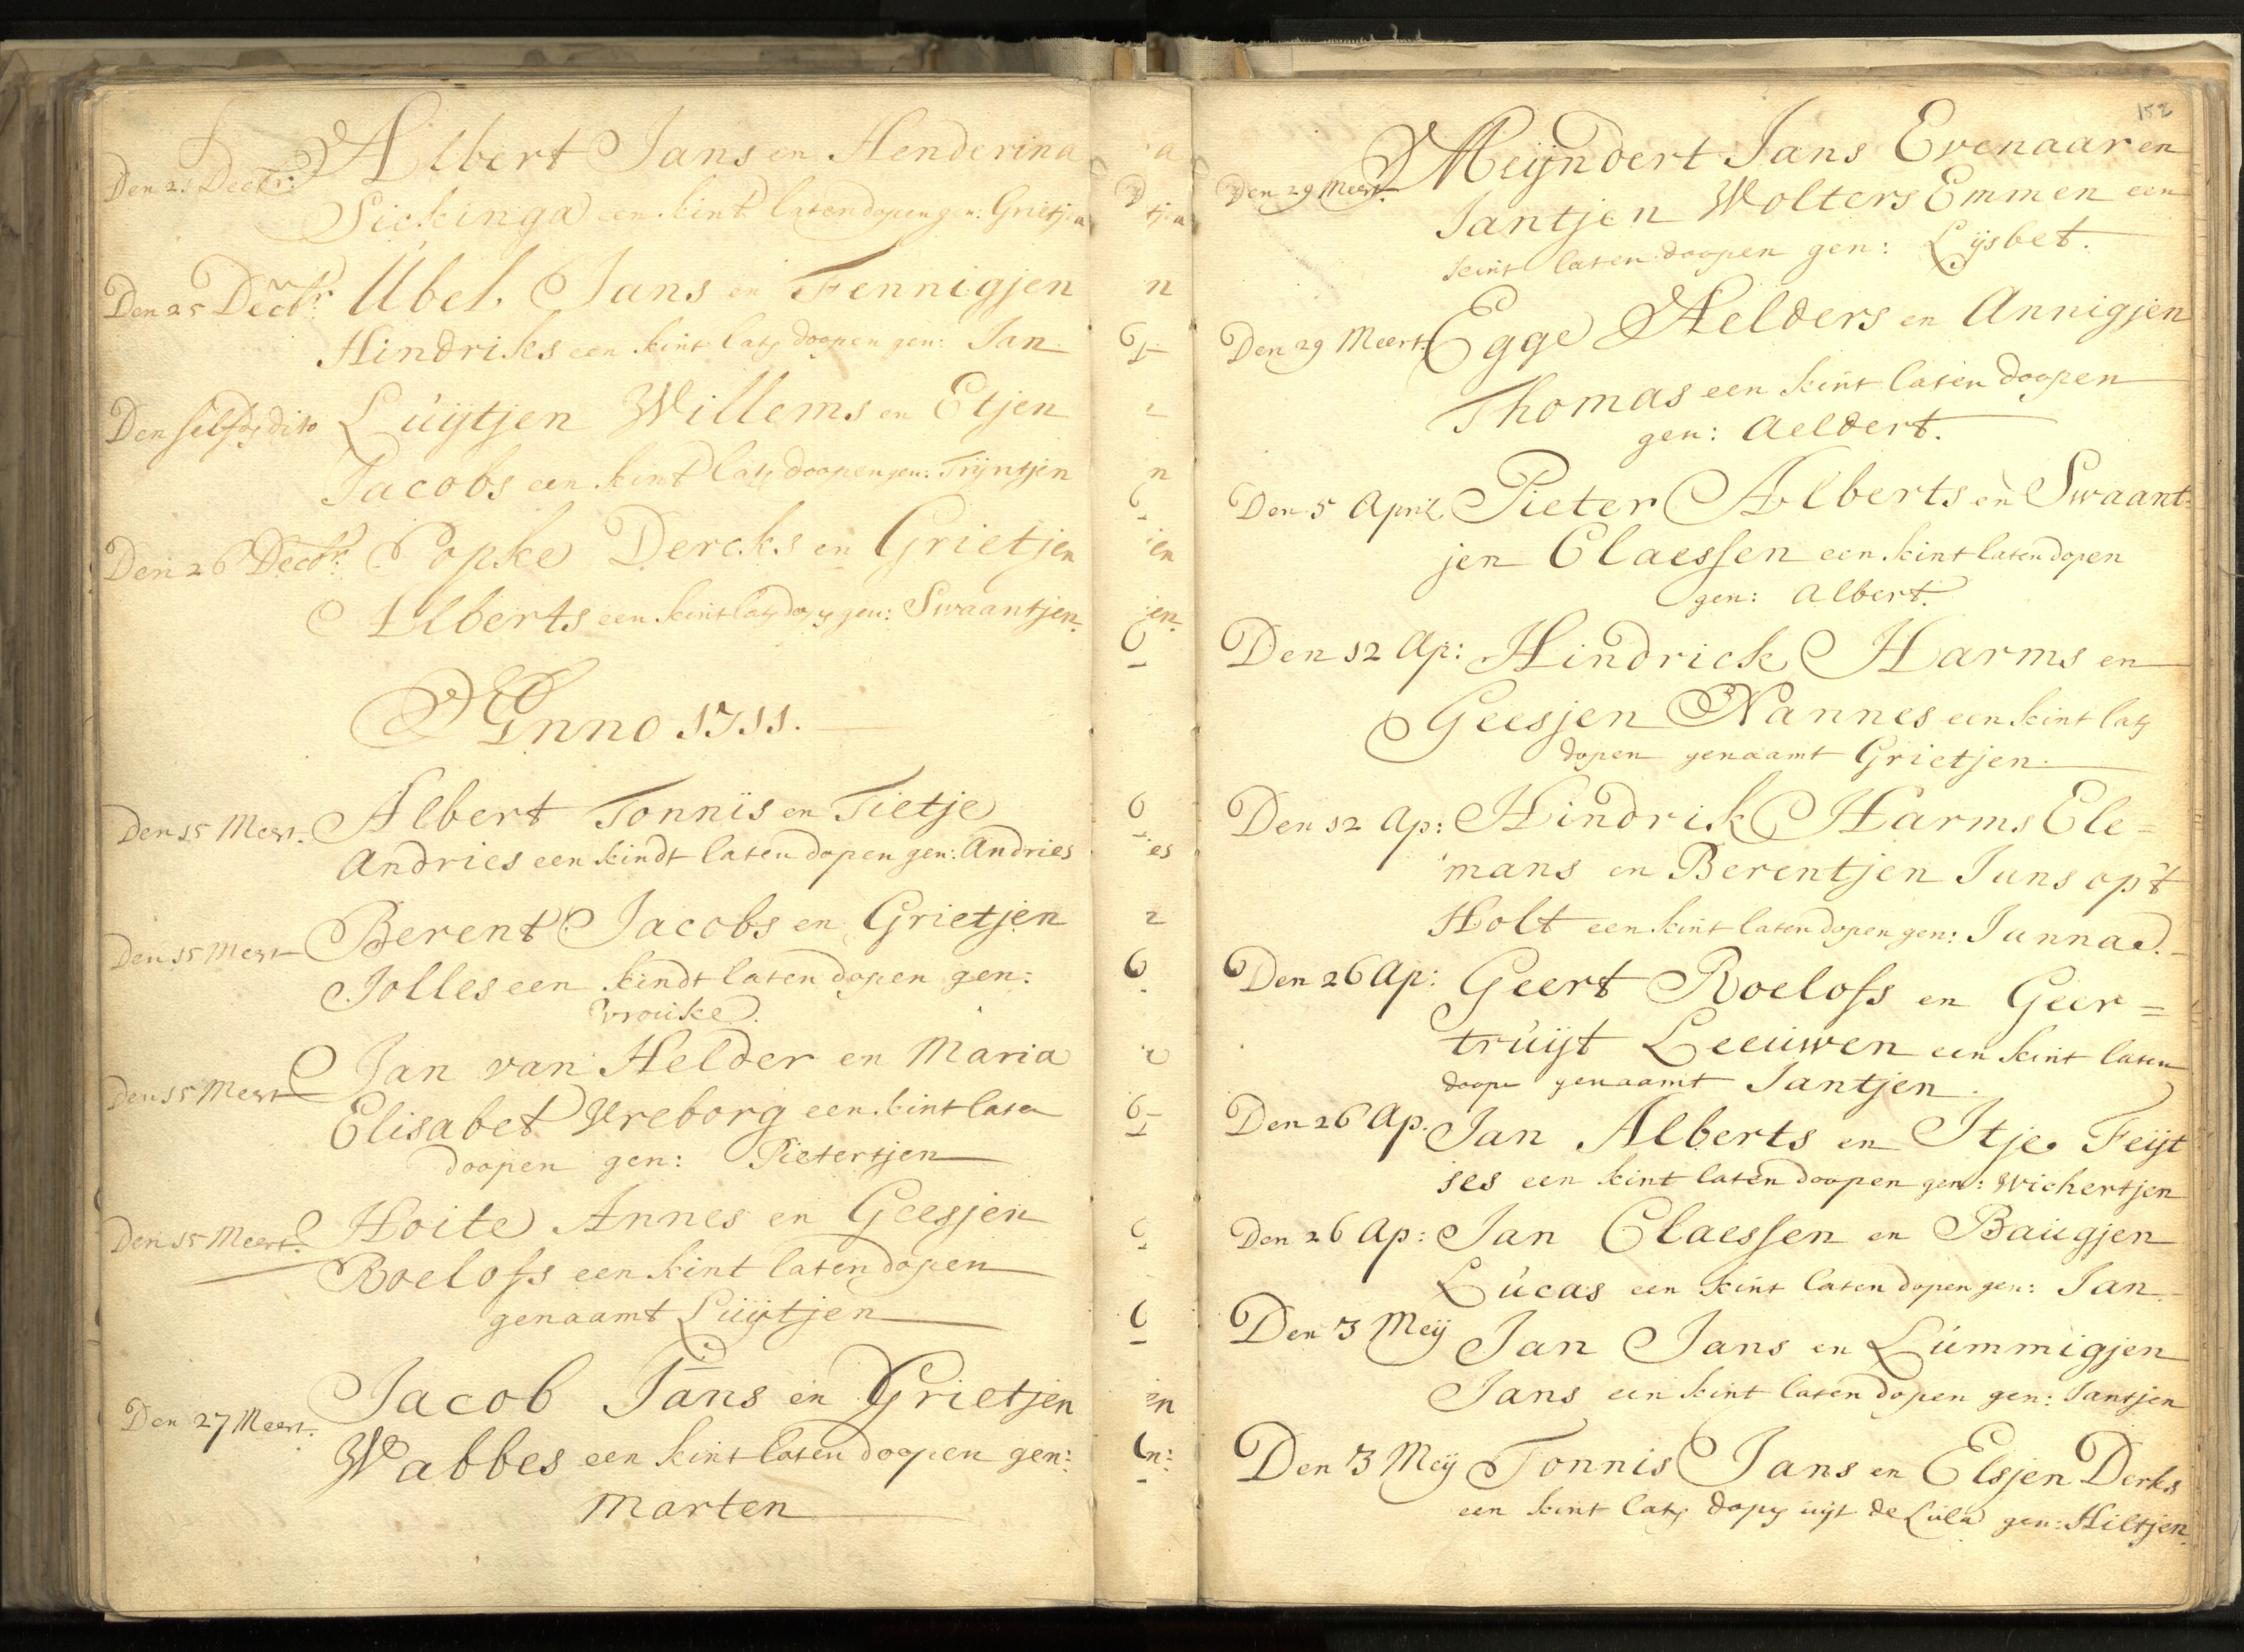 Den 21 Decbr: Albert Jans en Henderina
Sickinga een kint laten dopen gen: Grietjen
Den 25 Decbr: Ubel Jans en Fennigjen
Hindriks een kint laten doopen gen: Jan
Den selfden dito Lúijtjen Willems en Etjen
Jacobs een kint laten doopen gen: Trijntjen
Den 26 Decbr: Popke Dercks en Grietjen
Alberts een kint laten dopen gen: Swaantjen.
Anno 1711.
Den 15 Meert. Albert Tonnis en Tietje
Andries een kindt laten dopen gen: Andries
Den 15 Meert Berent Jacobs en Grietjen
Jolles een kindt laten dopen gen:
Vrouke.
Den 15 Meert Jan van Helder en Maria
Elisabet Vreborg een kint laten
doopen gen: Pietertjen
Den 15 Meert. Hoite Annes en Geesjen
Roelofs een kint laten dopen
genaamt Lúijtjen
Den 27 Meert. Jacob Jans en Grietjen
Wabbes een kint laten doopen gen:
Marten
152
Den 29 Meert. Meijndert Jans Evenaar en
Jantjen Wolters Emmen een
kint laten doopen gen: Lijsbet.
Den 29 Meert. Egge Aelders en Annigjen
Thomas een kint laten doopen
gen: Aeldert.
Den 5 April Pieter Alberts en Swaant-
jen Claessen een kint laten dopen
gen: Albert.
Den 12 Ap: Hindrick Harms en
Geesjen Nannes een kint laten
dopen genaamt Grietjen.
Den 12 Ap: Hindrik Harms Ele=
mans en Berentjen Jans op't
Holt een kint laten dopen gen: Janna.
Den 26 Ap: Geert Roelofs en Geer=
trúijt Leeúwen een kint laten
doopen genaamt Jantjen.
Den 26 Ap. Jan Alberts en Itje Feijt
ses een kint laten doopen gen: Wichertjen
Den 26 Ap: Jan Claessen en Baúgjen
Lúcas een kint laten dopen gen: Jan.
Den 3 Meij Jan Jans en Lúmmigjen
Jans een kint laten dopen gen: Jantjen
Den 3 Meij Tonnis Jans en Elsjen Derks
een kint laten dopen uijt de Lula gen: Hiltjen.